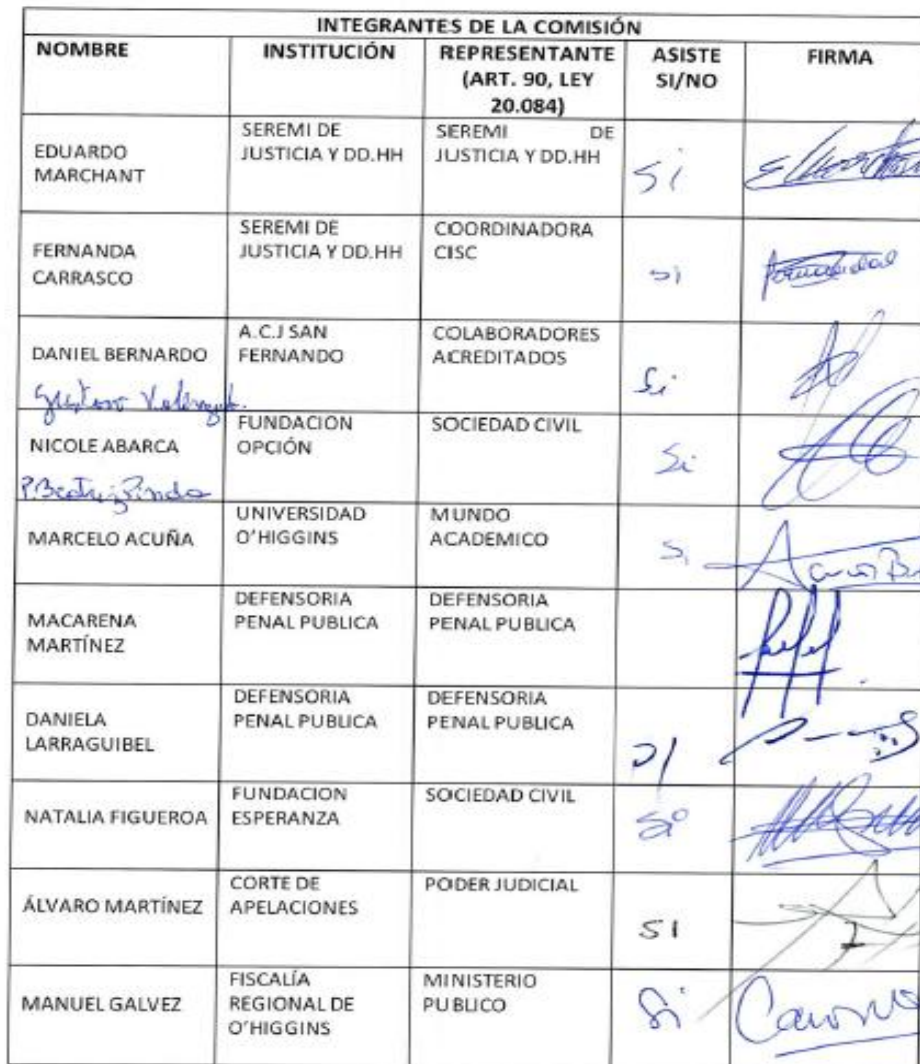 INTEGRANTES DE LA COMISIÓN
NOMBRE INSTITUCIÓN REPRESENTANTE (ART. 90, LEY 20.084) ASISTE SI/NO FIRMA
EDUARDO MARCHANT SEREMI DE JUSTICIA Y DD.HH SEREMI DE JUSTICIA Y DD.HH Si
FERNANDA CARRASCO SEREMI DE JUSTICIA Y DD.HH COORDINADORA CISC si
DANIEL BERNARDO A.C.J SAN FERNANDO COLABORADORES ACREDITADOS Si
Gustavo
NICOLE ABARCA FUNDACION OPCIÓN SOCIEDAD CIVIL Si
P. Beatriz Pinda
MARCELO ACUÑA UNIVERSIDAD O'HIGGINS MUNDO ACADEMICO Si
MACARENA MARTÍNEZ DEFENSORIA PENAL PUBLICA DEFENSORIA PENAL PUBLICA
DANIELA LARRAGUIBEL DEFENSORIA PENAL PUBLICA DEFENSORIA PENAL PUBLICA SI
NATALIA FIGUEROA FUNDACION ESPERANZA SOCIEDAD CIVIL Si
ÁLVARO MARTÍNEZ CORTE DE APELACIONES PODER JUDICIAL SI
MANUEL GALVEZ FISCALÍA REGIONAL DE O'HIGGINS MINISTERIO PUBLICO Si